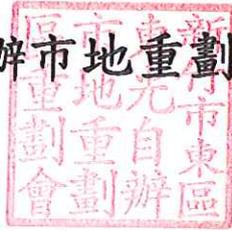 辦市地重劃
新竹市東區
東光自辦
市地重劃
區重劃會